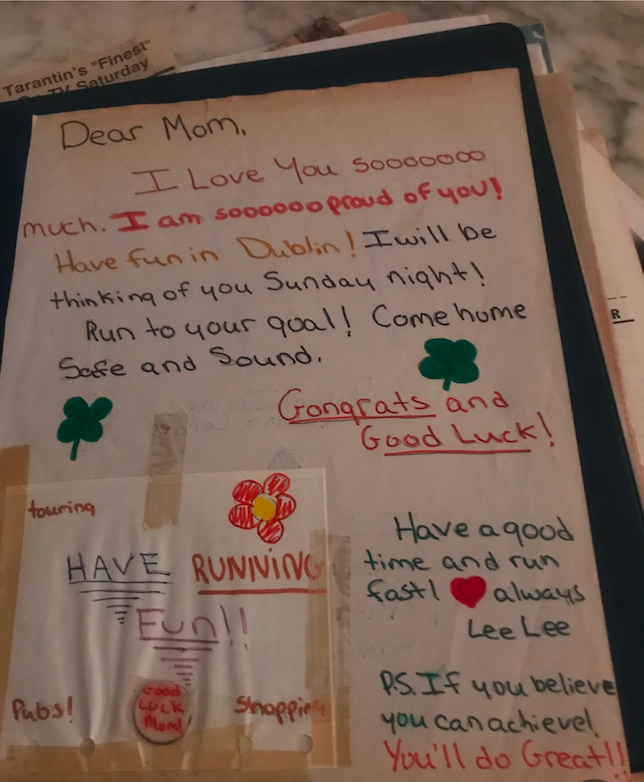 Tarantin's "Finest"
On TV Saturday
Dear Mom,
I Love You sooooooo
much. I am soooooo proud of you!
Have fun in Dublin! I will be
thinking of you Sunday night!
Run to your goal! Come home
Safe and Sound.
Congrats and
Good Luck!
touring
HAVE RUNNING
Fun!!
Pubs!
Good
LUCK
Mom!
Shopping
Have a good
time and run
fast! always
Lee Lee
P.S. If you believe
you can achieve!
You'll do Great!!
R